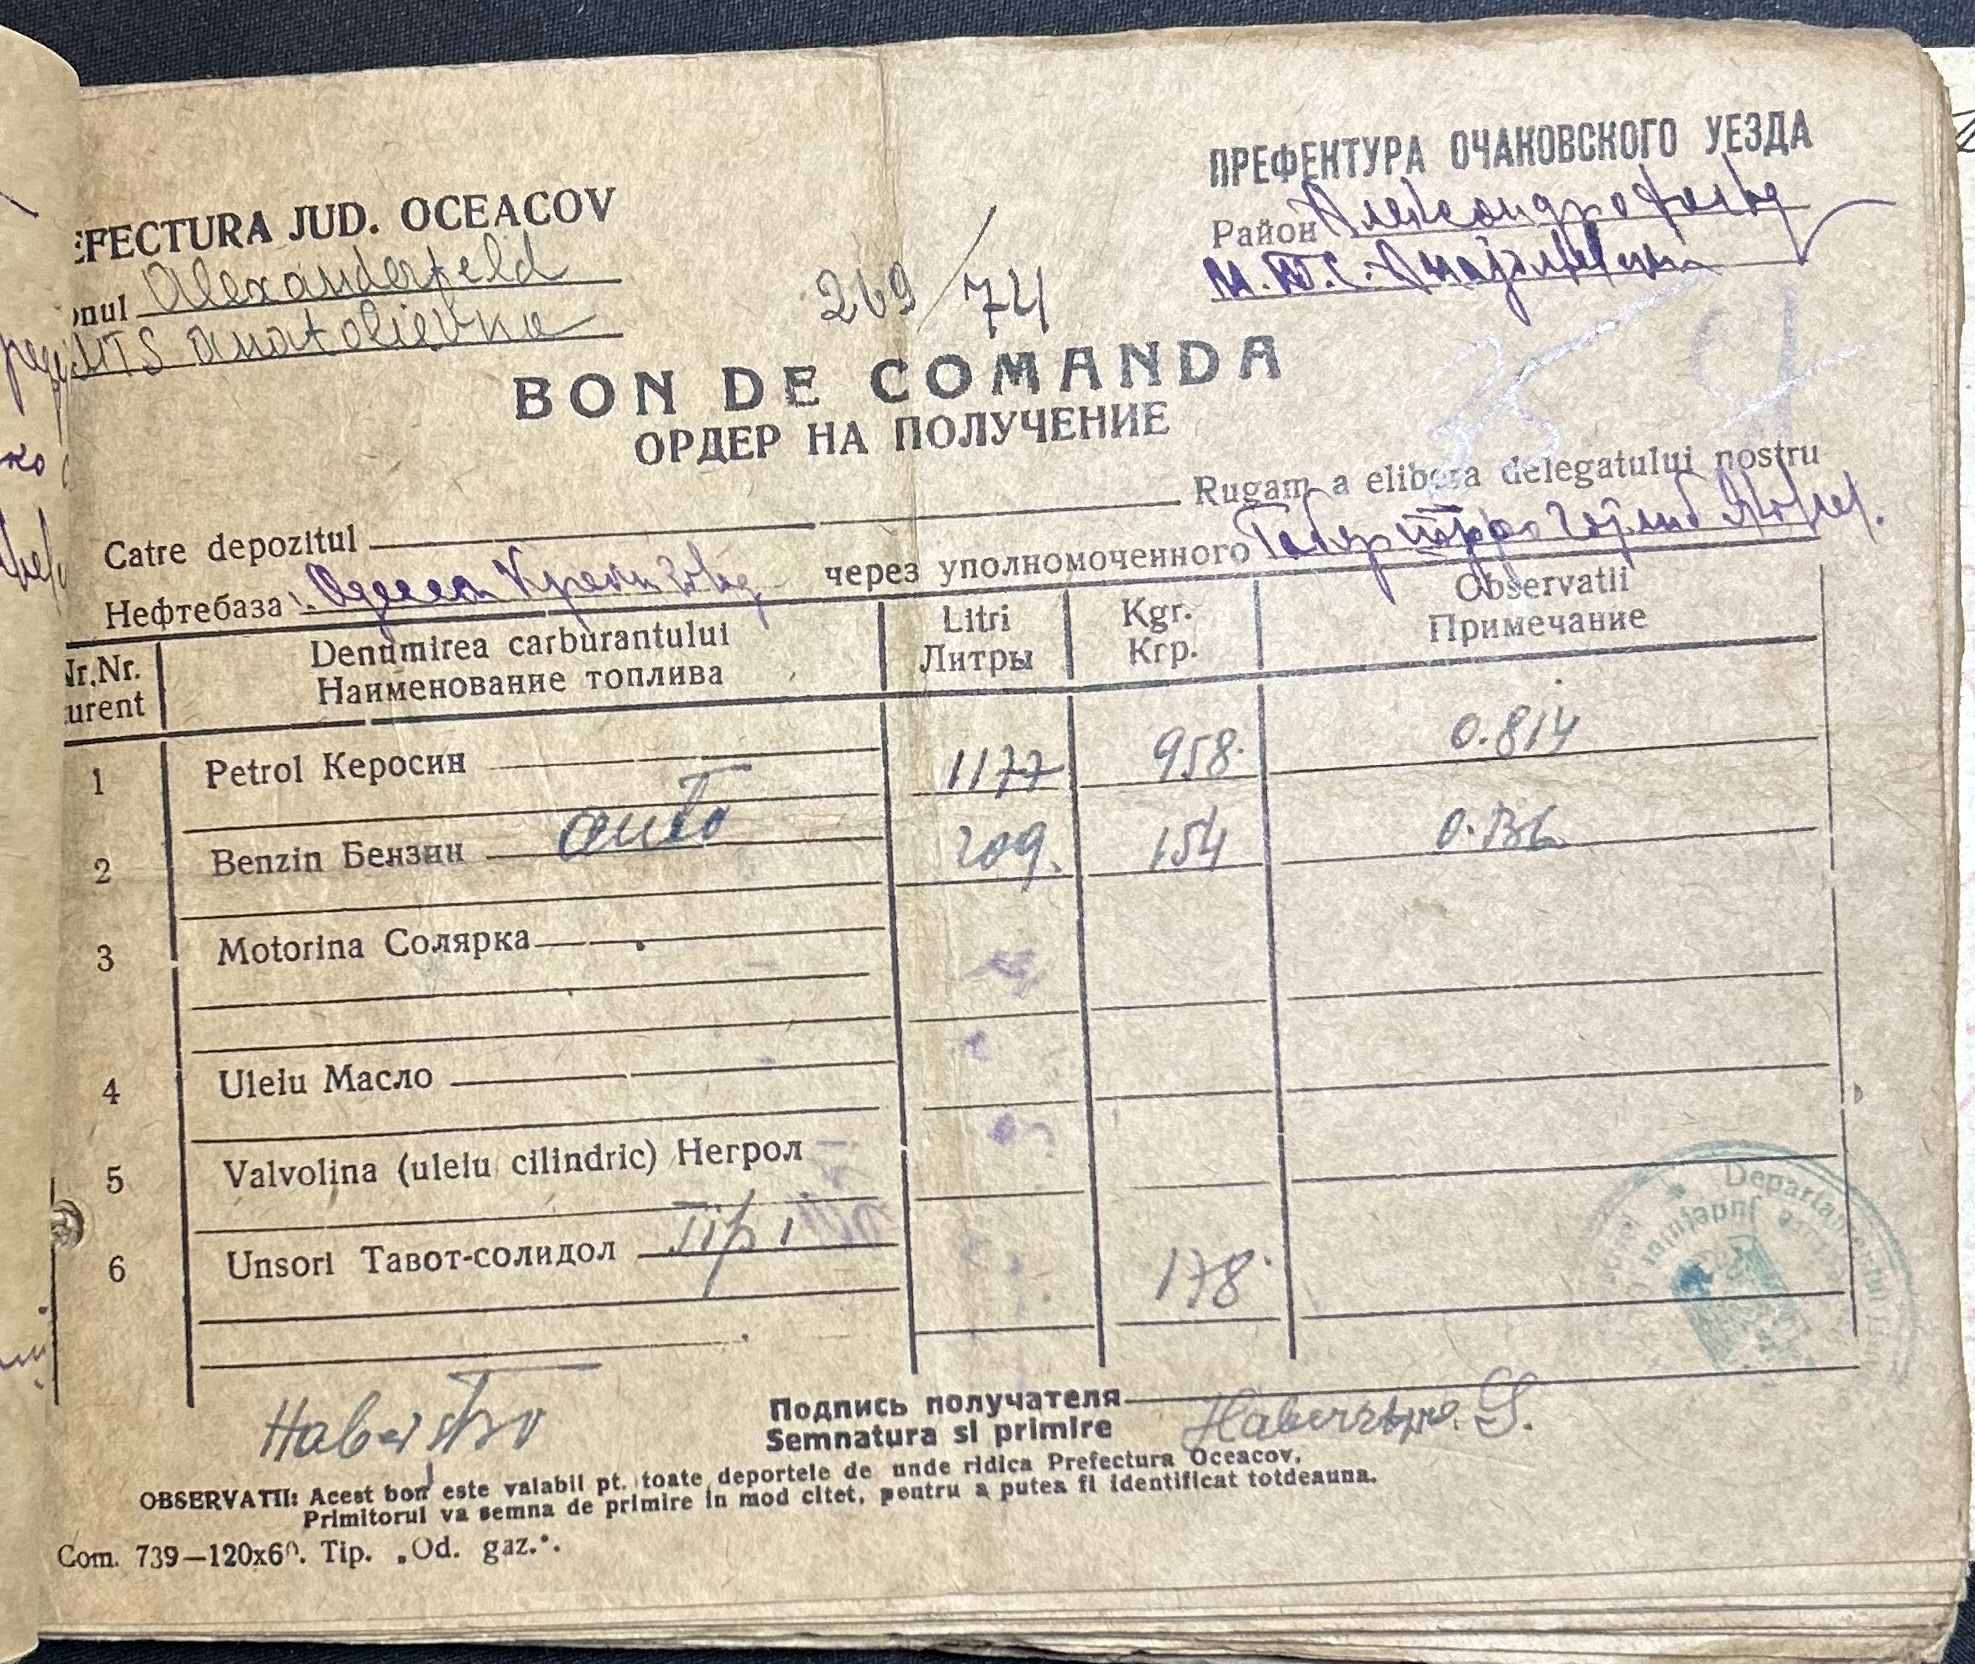 EFECTURA JUD. OCEACOV
onul Alexanderfeld
MTS Anatolievka
269/74
ПРЕФЕКТУРА ОЧАКОВСКОГО УЕЗДА
Район Александрофельд
М.Т.С.
BON DE COMANDA
ОРДЕР НА ПОЛУЧЕНИЕ
35
Catre depozitul Rugam a elibera delegatului nostru
Нефтебаза Одесса Крекинг завод через уполномоченного
Nr.Nr. urent
Denumirea carburantului Наименование топлива
Litri Литры
Kgr. Кгр.
Observatii Примечание
1 Petrol Керосин 1177 958 0.814
2 Benzin Бензин auto 209. 154 0.736
3 Motorina Солярка
4 Uleiu Масло
5 Valvolina (uleiu cilindric) Негрол
6 Unsori Тавот-солидол Tip 1 178
Haberstro
Подпись получателя
Semnatura si primire Haberstro. G.
OBSERVATII: Acest bon este valabil pt. toate deportele de unde ridica Prefectura Oceacov,
Primitorul va semna de primire in mod citet, pentru a putea fi identificat totdeauna.
Com. 739—120x60. Tip. „Od. gaz.".
Departamentul